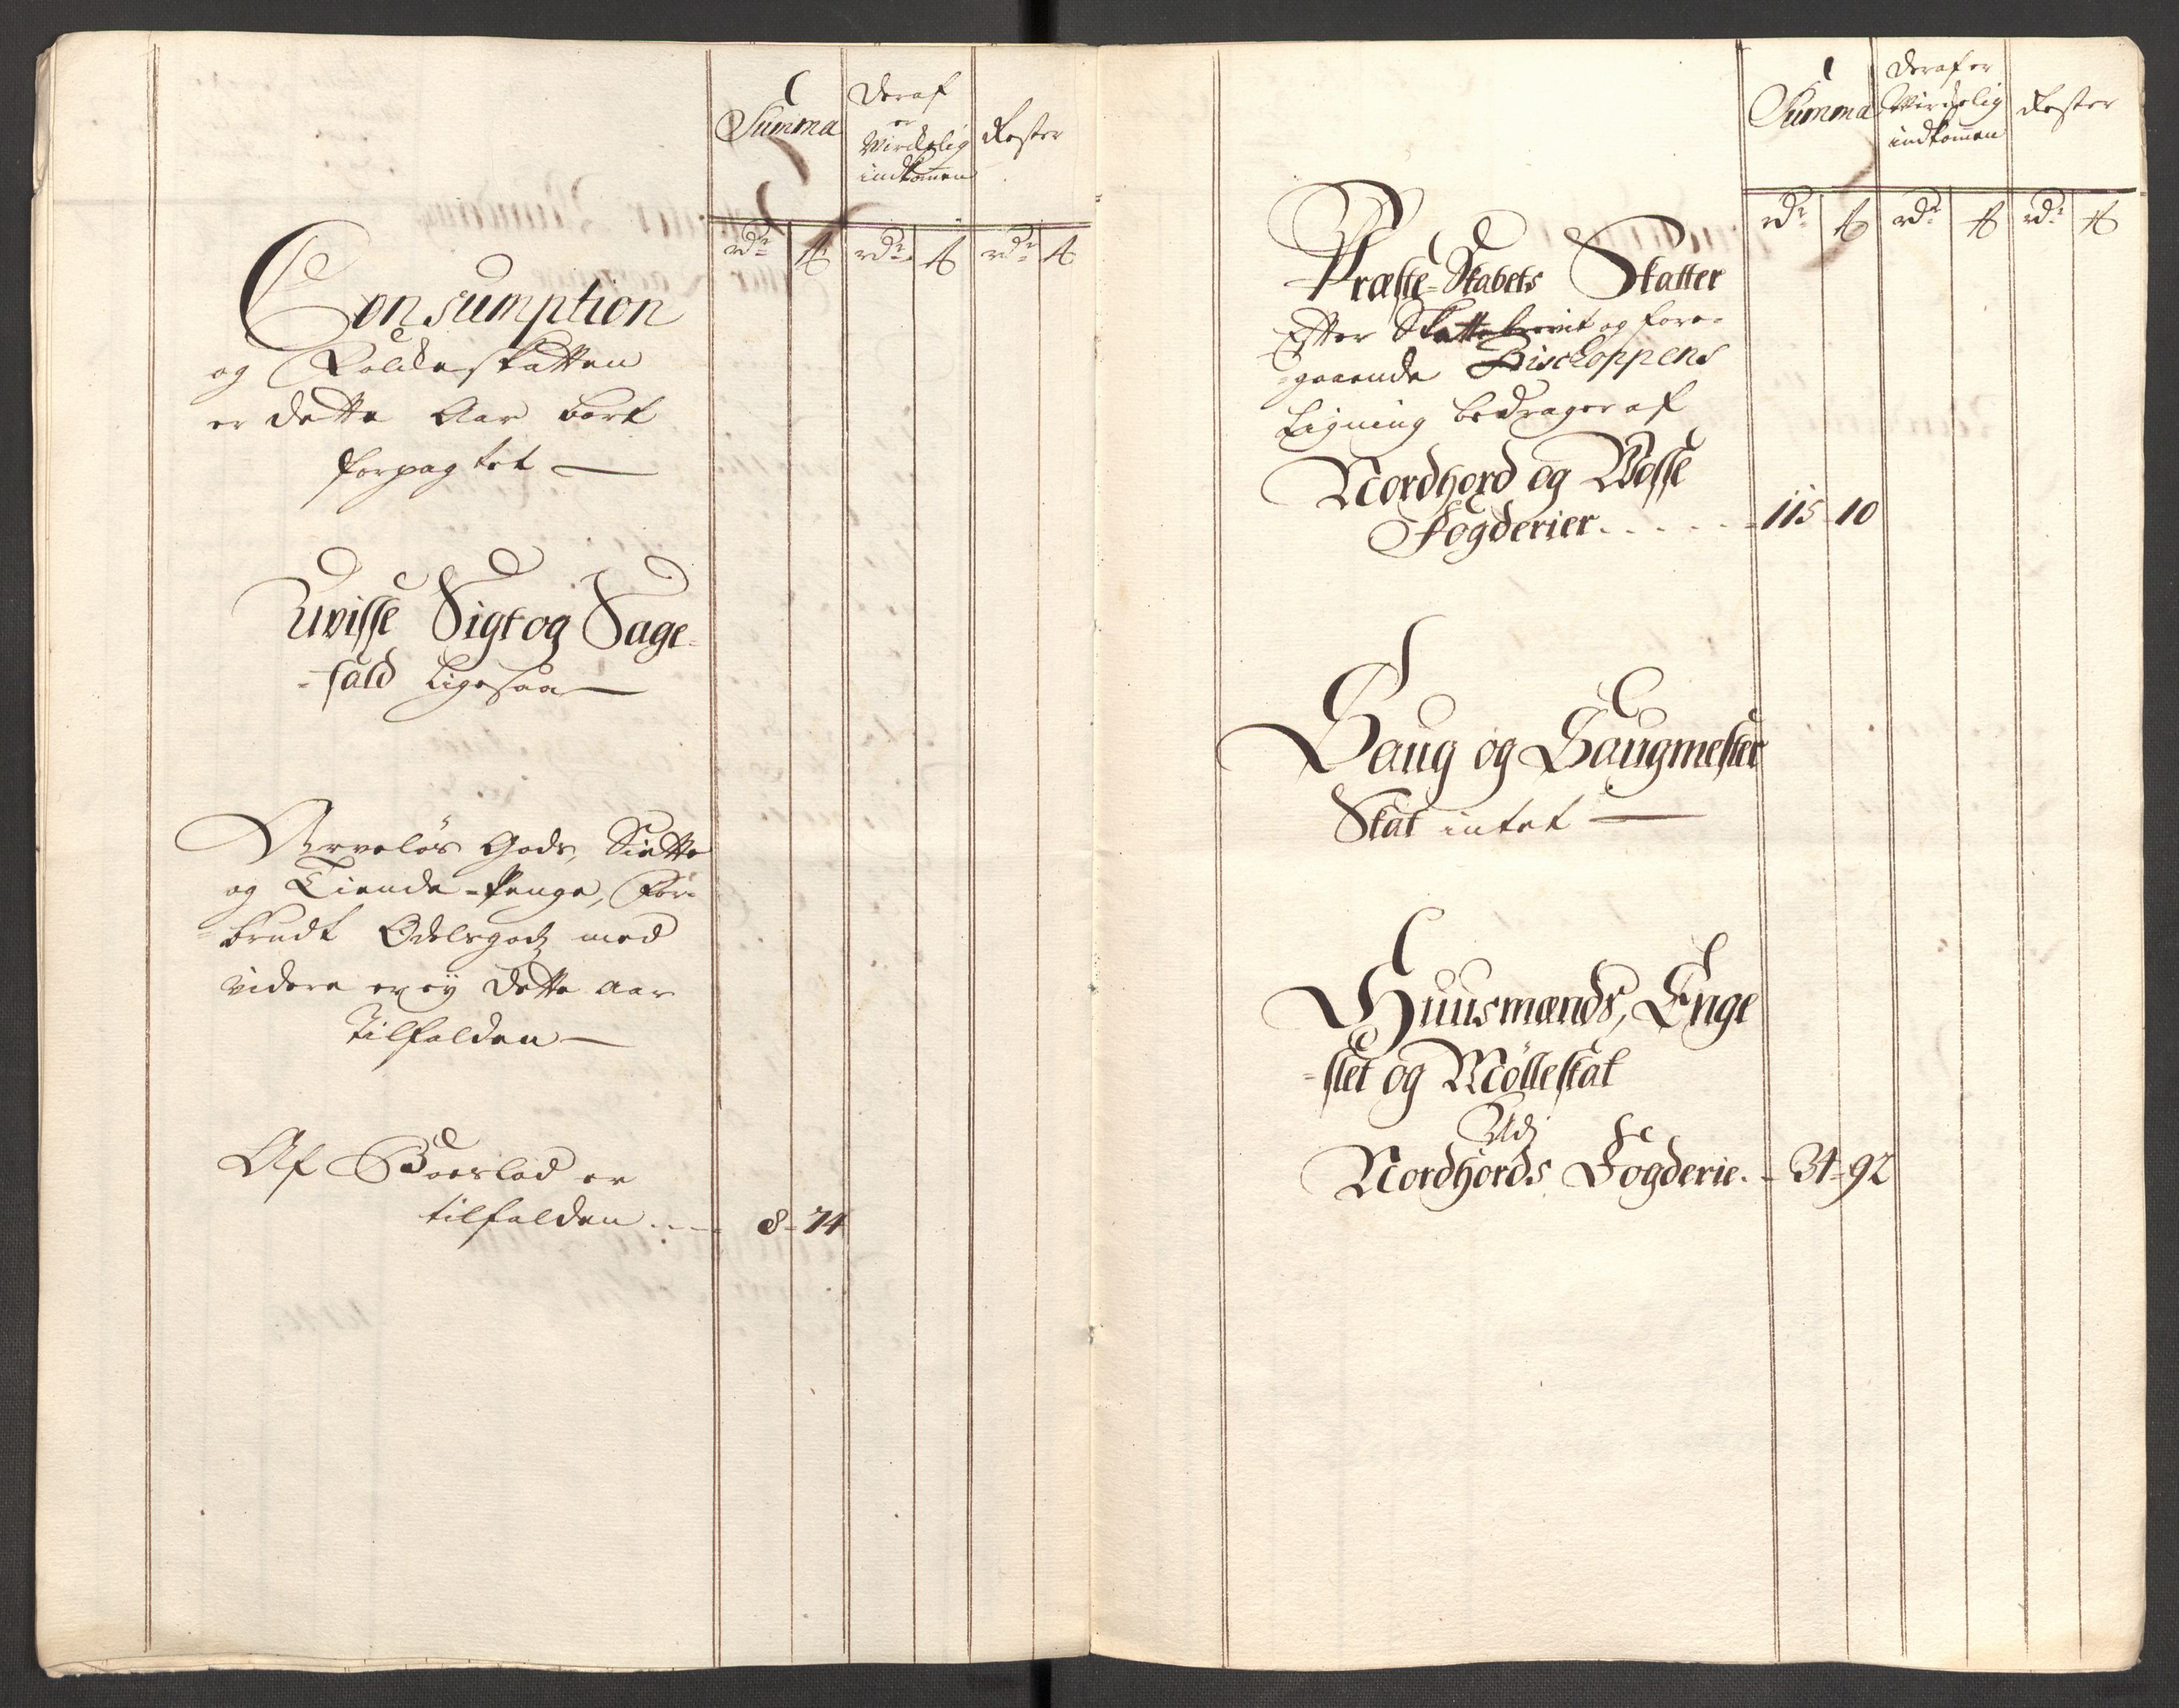 Summa
Deraf
er
Virckelig
indkommen
Rester
rdr ß rdr ß rdr ß
Consumption
og Folckeskatten
er dette Aar bort
forpagtet —
Uvisse Sigt og Sage-
-fald Ligesaa —
Arveløs Gods, Siette
og Tiende-Penge, For-
-brudt Odelsgodz med
videre er ey dette Aar
tilfalden —
Af Boeslod er
tilfalden . . . 8 - 74
Summa
Deraf er
Virckelig
indkommen
Rester
rdr ß rdr ß rdr ß
Præste-Skabets Skatter
Efter Skattebrevet og fore-
-gaaende Bischoppens
Ligning bedrager af
Nordhord og Wosse
Fogderier . . . . . 115 - 10
Saug og Saugmester
Skat intet —
Huusmænds, Enge
-slet og Mølleskat
Udj
Nordhords Fogderie . - 34 - 92